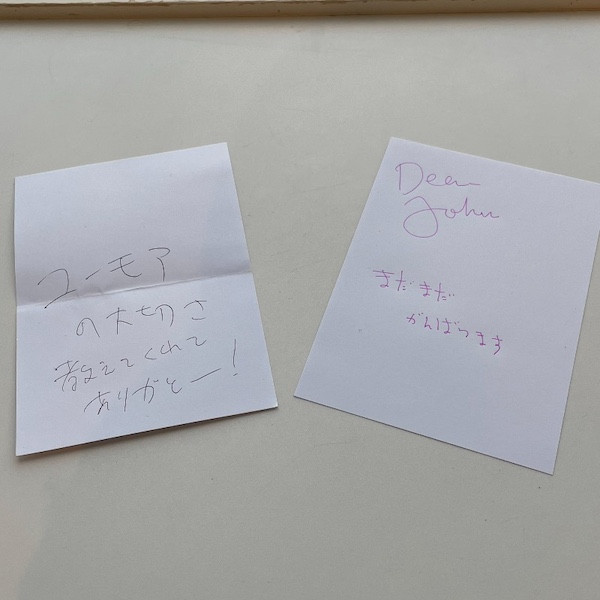 ユーモア
の大切さ
教えてくれて
ありがとー!
Dear
John
まだまだ
がんばります